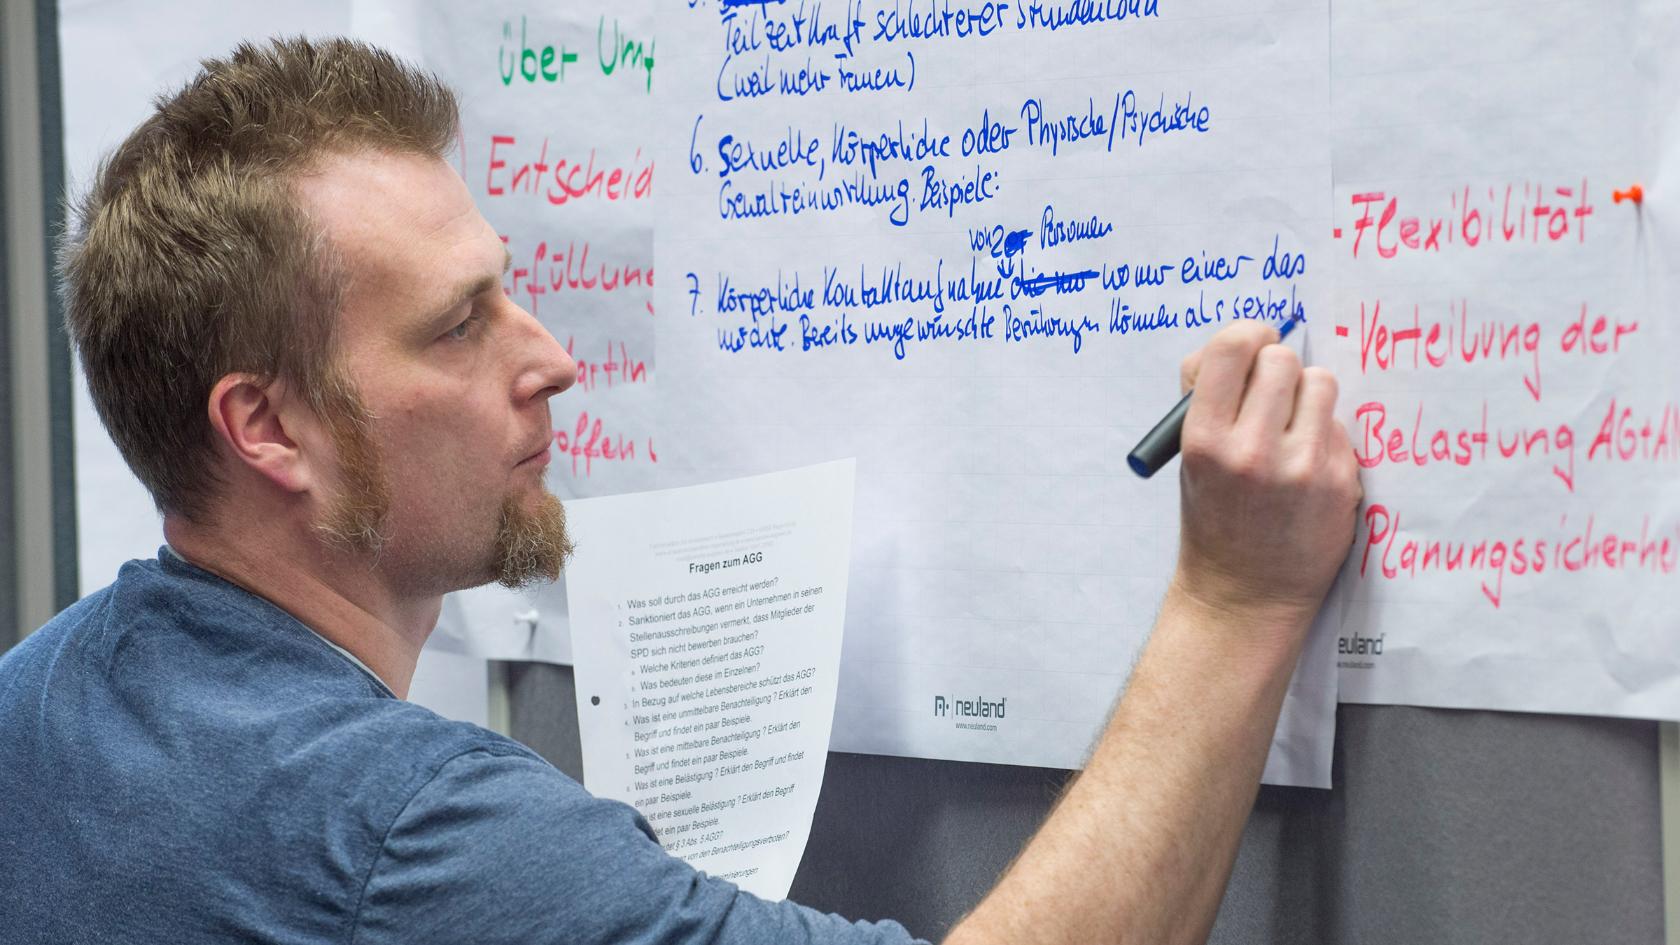 über Umf
Entscheid
rfüllung
artin
offen
Teilzeitkraft schlechterer Stundenlohn
(weil mehr Frauen)
6. Sexuelle, Körperliche oder Physische/Psychische
Gewalteinwirkung. Beispiele:
von 2 Personen
7. Körperliche Kontaktaufnahme die nur wo nur einer das
möchte. Bereits ungewünschte Berührungen können als sexbelä
- Flexibilität
- Verteilung der
Belastung AG+AN
Planungssicherhe
neuland
www.neuland.com
euland
Fragen zum AGG
1. Was soll durch das AGG erreicht werden?
2. Sanktioniert das AGG, wenn ein Unternehmen in seinen
Stellenausschreibungen vermerkt, dass Mitglieder der
SPD sich nicht bewerben brauchen?
Welche Kriterien definiert das AGG?
Was bedeuten diese im Einzelnen?
3. In Bezug auf welche Lebensbereiche schützt das AGG?
4. Was ist eine unmittelbare Benachteiligung ? Erklärt den
Begriff und findet ein paar Beispiele.
5. Was ist eine mittelbare Benachteiligung ? Erklärt den
Begriff und findet ein paar Beispiele.
6. Was ist eine Belästigung ? Erklärt den Begriff und findet
ein paar Beispiele.
ist eine sexuelle Belästigung ? Erklärt den Begriff
det ein paar Beispiele.
utet § 3 Abs. 5 AGG?
von den Benachteiligungsverboten?
riminierungen